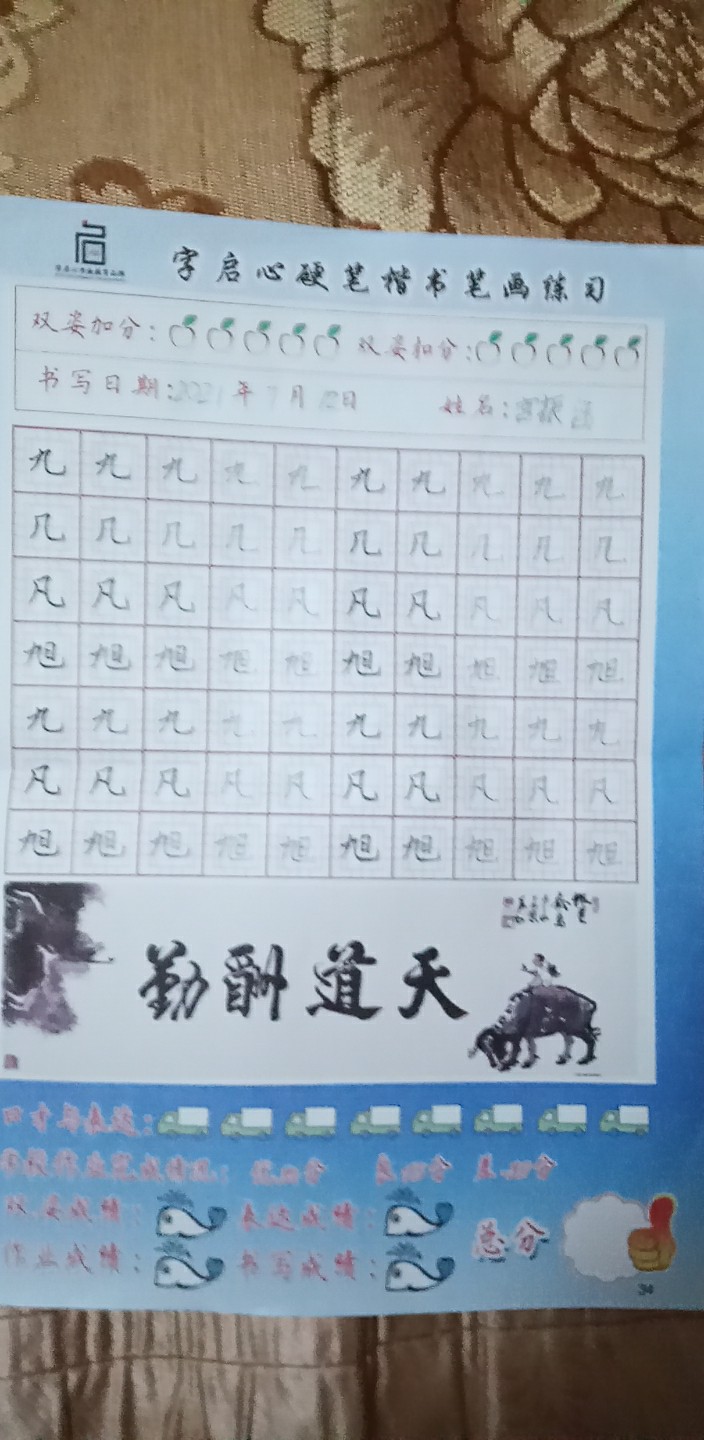 字启心硬笔楷书笔画练习
双姿加分： 双姿扣分：
书写日期：2021年7月12日 姓名：
九九九九九九九九九九
几几几几几几几几几几
凡凡凡凡凡凡凡凡凡凡
旭旭旭旭旭旭旭旭旭旭
九九九九九九九九九九
凡凡凡凡凡凡凡凡凡凡
旭旭旭旭旭旭旭旭旭旭
天道酬勤
口才与表达：
作业完成情况：
双姿成绩： 表达成绩： 总分
作业成绩： 书写成绩：
34